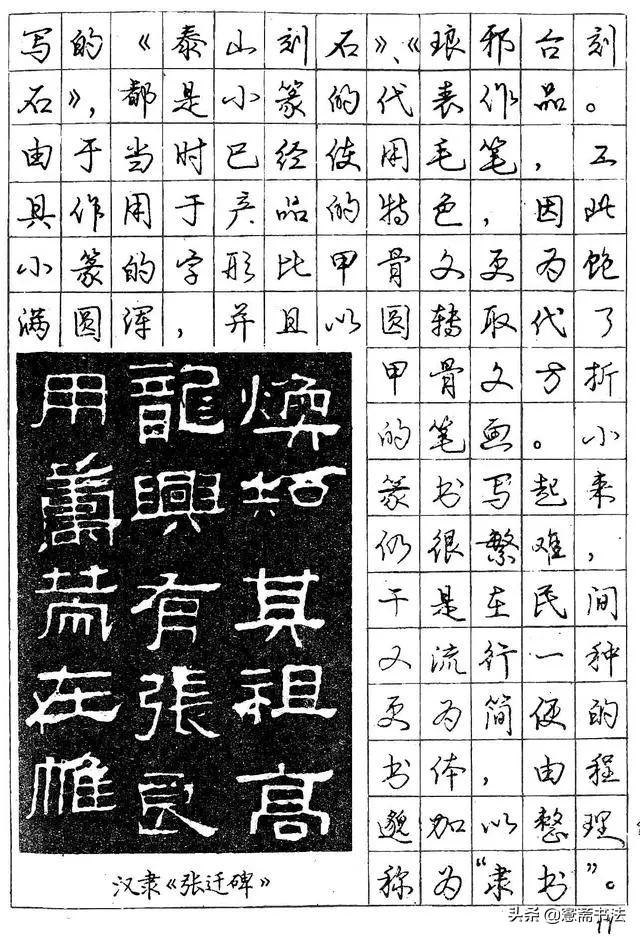 写的《泰山刻石》、《琅邪台刻
石》，都是小篆的代表作品。
由于当时已经使用毛笔，工
具作用于产品的特色，因此
小篆的字形比甲骨文更为饱
满圆浑，并且以圆转取代了
甲骨文方折
的笔画。小
篆书写起来
仍很繁难，
于是在民间
又流行一种
更为简便的
书体，由程
邈加以整理
称为“隶书”。
煥知其祖高
龍興有張良
用籌策在帷
汉隶《张迁碑》
头条@憲斋书法
11